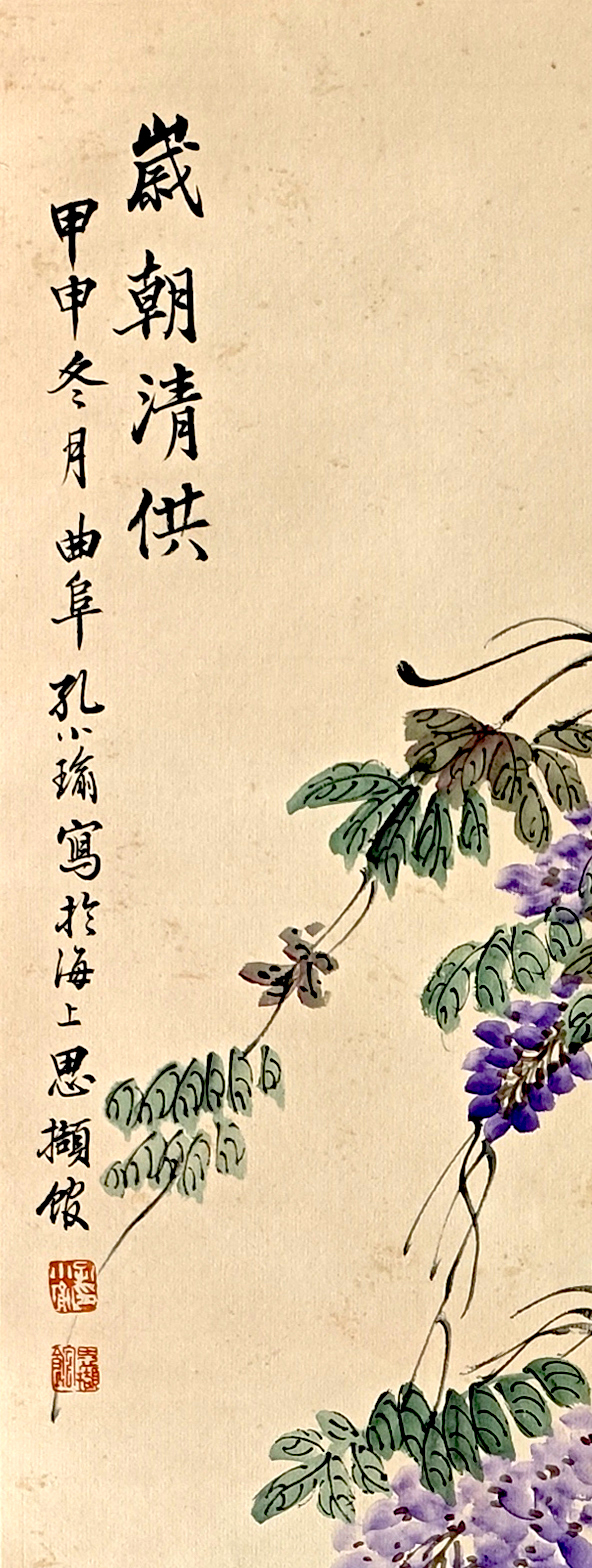 歲朝清供
甲申冬月曲阜孔小瑜寫於海上思擷館